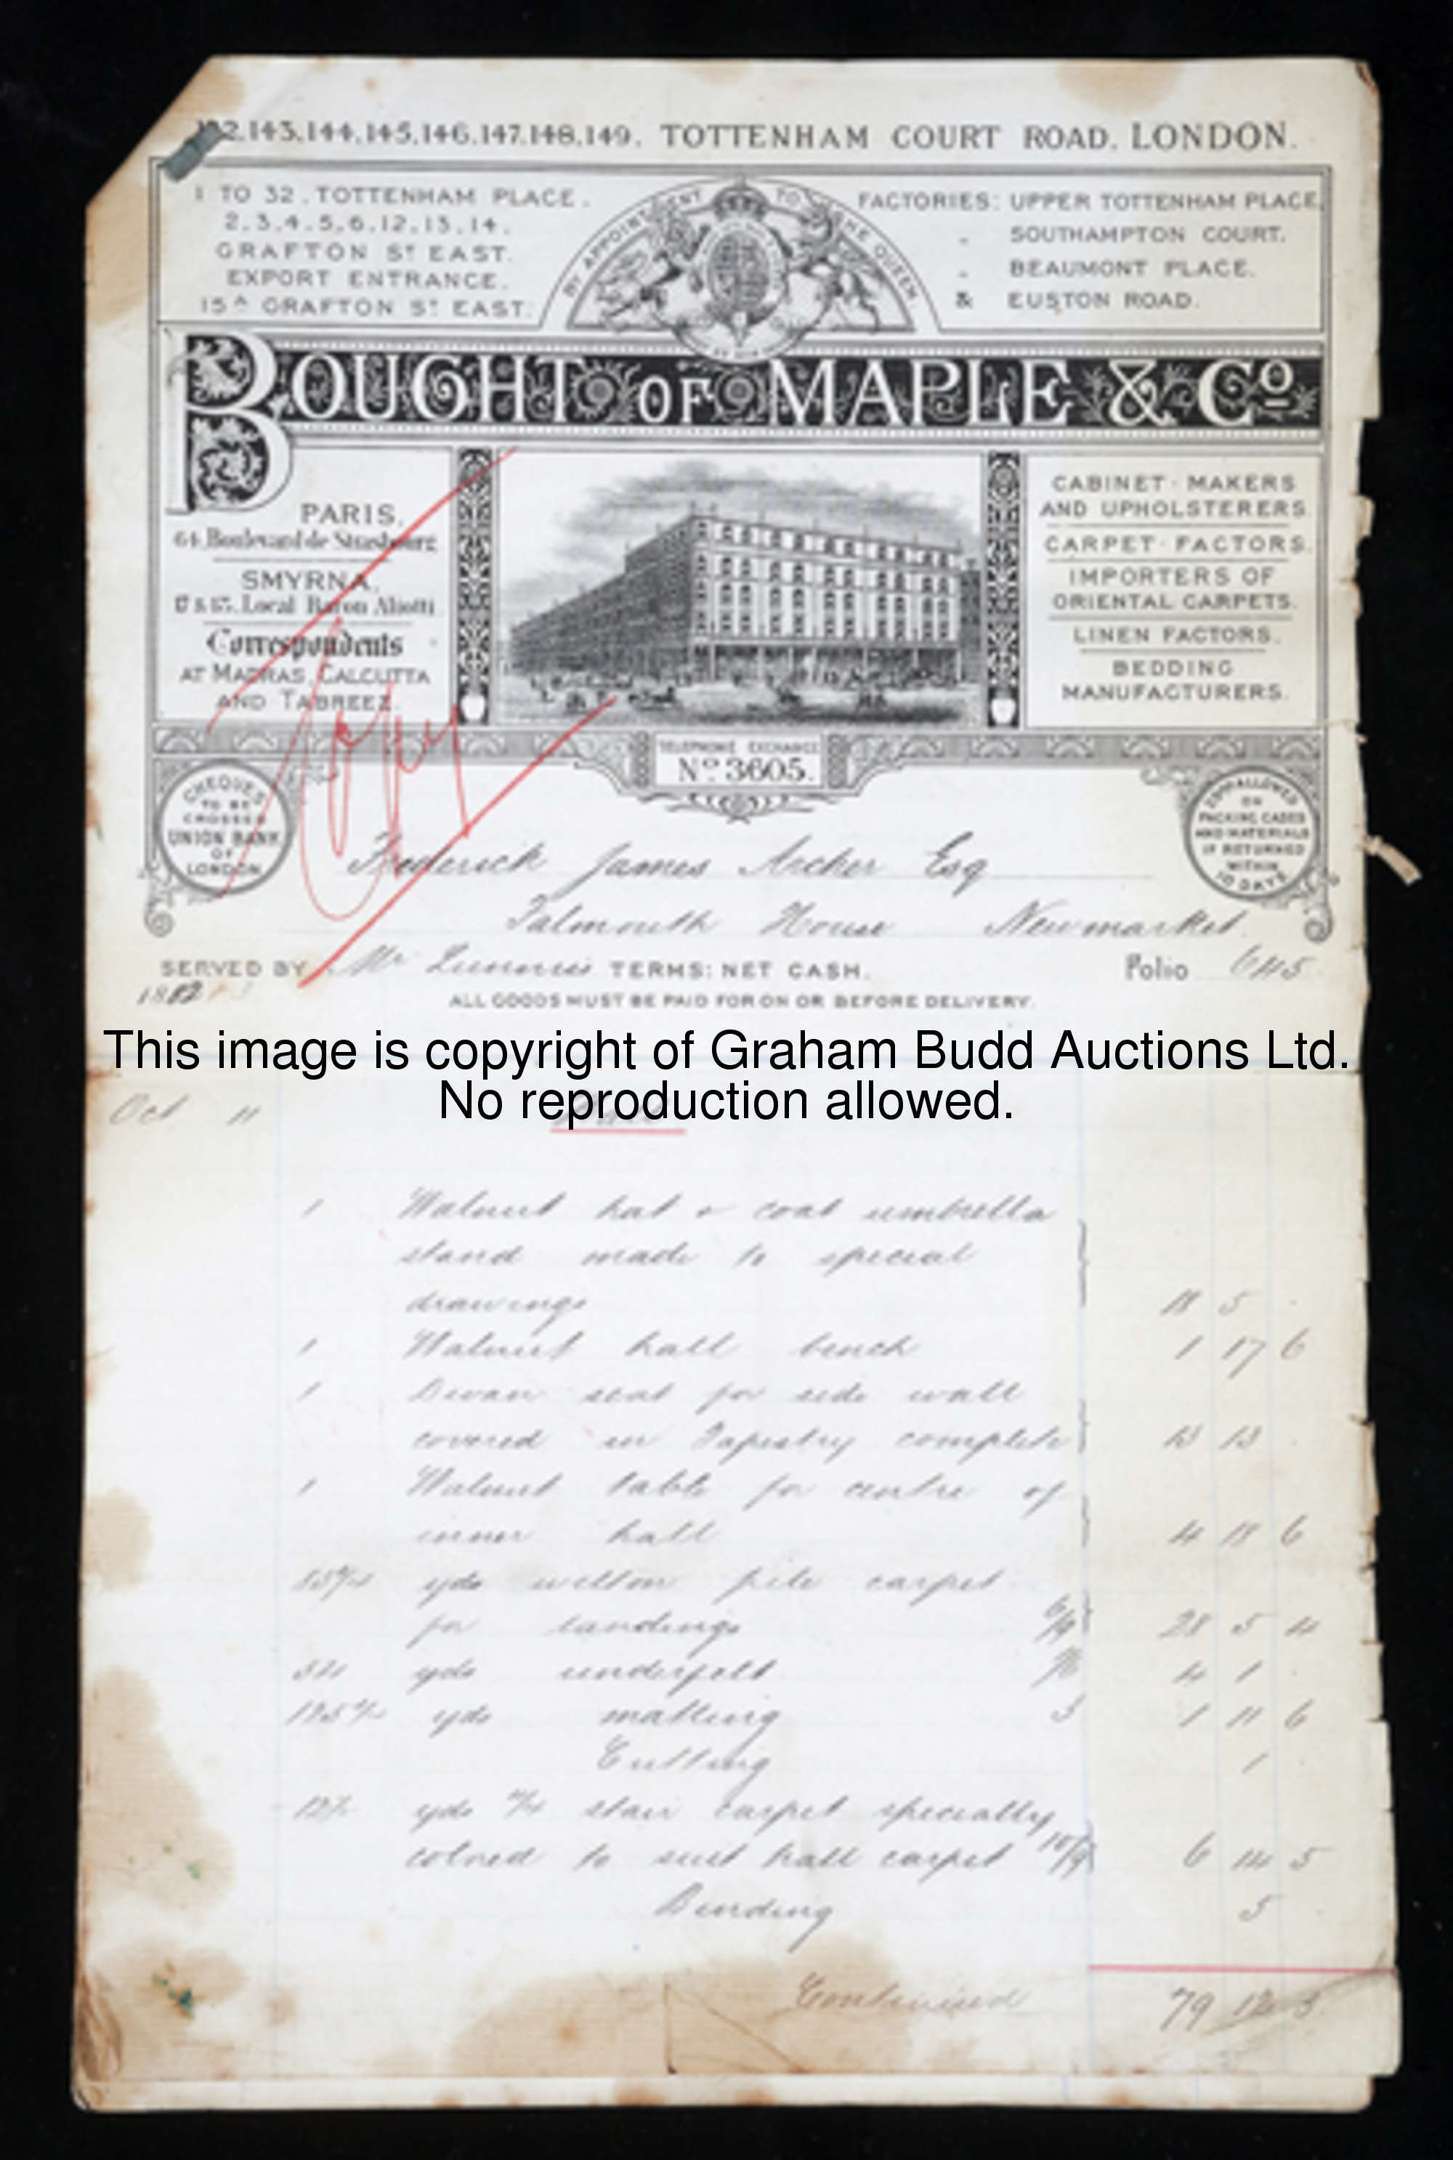 142,143,144,145,146,147,148,149, TOTTENHAM COURT ROAD, LONDON.
1 TO 32, TOTTENHAM PLACE.
2,3,4,5,6,12,13,14,
GRAFTON ST EAST.
EXPORT ENTRANCE.
15A GRAFTON ST EAST.
BY APPOINTMENT TO THE QUEEN
FACTORIES: UPPER TOTTENHAM PLACE,
" SOUTHAMPTON COURT.
" BEAUMONT PLACE.
& EUSTON ROAD.
BOUGHT OF MAPLE & Co
PARIS,
64, Boulevard de Strasbourg
SMYRNA,
Local Baron Aliotti
Correspondents
AT MADRAS, CALCUTTA
AND TABREEZ.
CABINET · MAKERS
AND UPHOLSTERERS
CARPET · FACTORS.
IMPORTERS OF
ORIENTAL CARPETS.
LINEN FACTORS.
BEDDING
MANUFACTURERS.
Copy
TELEPHONE EXCHANGE
No 3605.
CHEQUES
TO BE
CROSSED
UNION BANK
OF
LONDON
ALLOWED
ON
PACKING CASES
AND MATERIALS
IF RETURNED
WITHIN
10 DAYS
Frederick James Archer Esq
Falmouth House Newmarket.
SERVED BY Mr TERMS: NET CASH.
Folio 645
1882
ALL GOODS MUST BE PAID FOR ON OR BEFORE DELIVERY.
This image is copyright of Graham Budd Auctions Ltd.
No reproduction allowed.
Oct 11 Hall
1 Walnut hat & coat umbrella
stand made to special
drawings 18 5
1 Walnut hall bench 1 17 6
1 Divan seat for side wall
covered in Tapestry complete 13 13
1 Walnut table for centre of
inner hall 4 18 6
yds wilton pile carpet
for landings 6/9 28 5 4
54 yds underfelt 1/6 4 1
yds matting 3 1 11 6
Cutting 1
12½ yds 4/4 stair carpet specially
colored to suit hall carpet 10/9 6 14 5
Binding 5
Continued 79 12 3